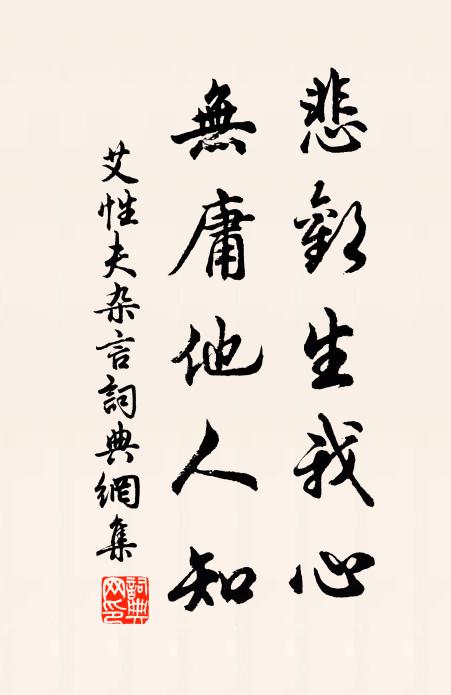 悲歡生我心
無庸他人知
艾性夫杂言詞典網集
詞典
网印